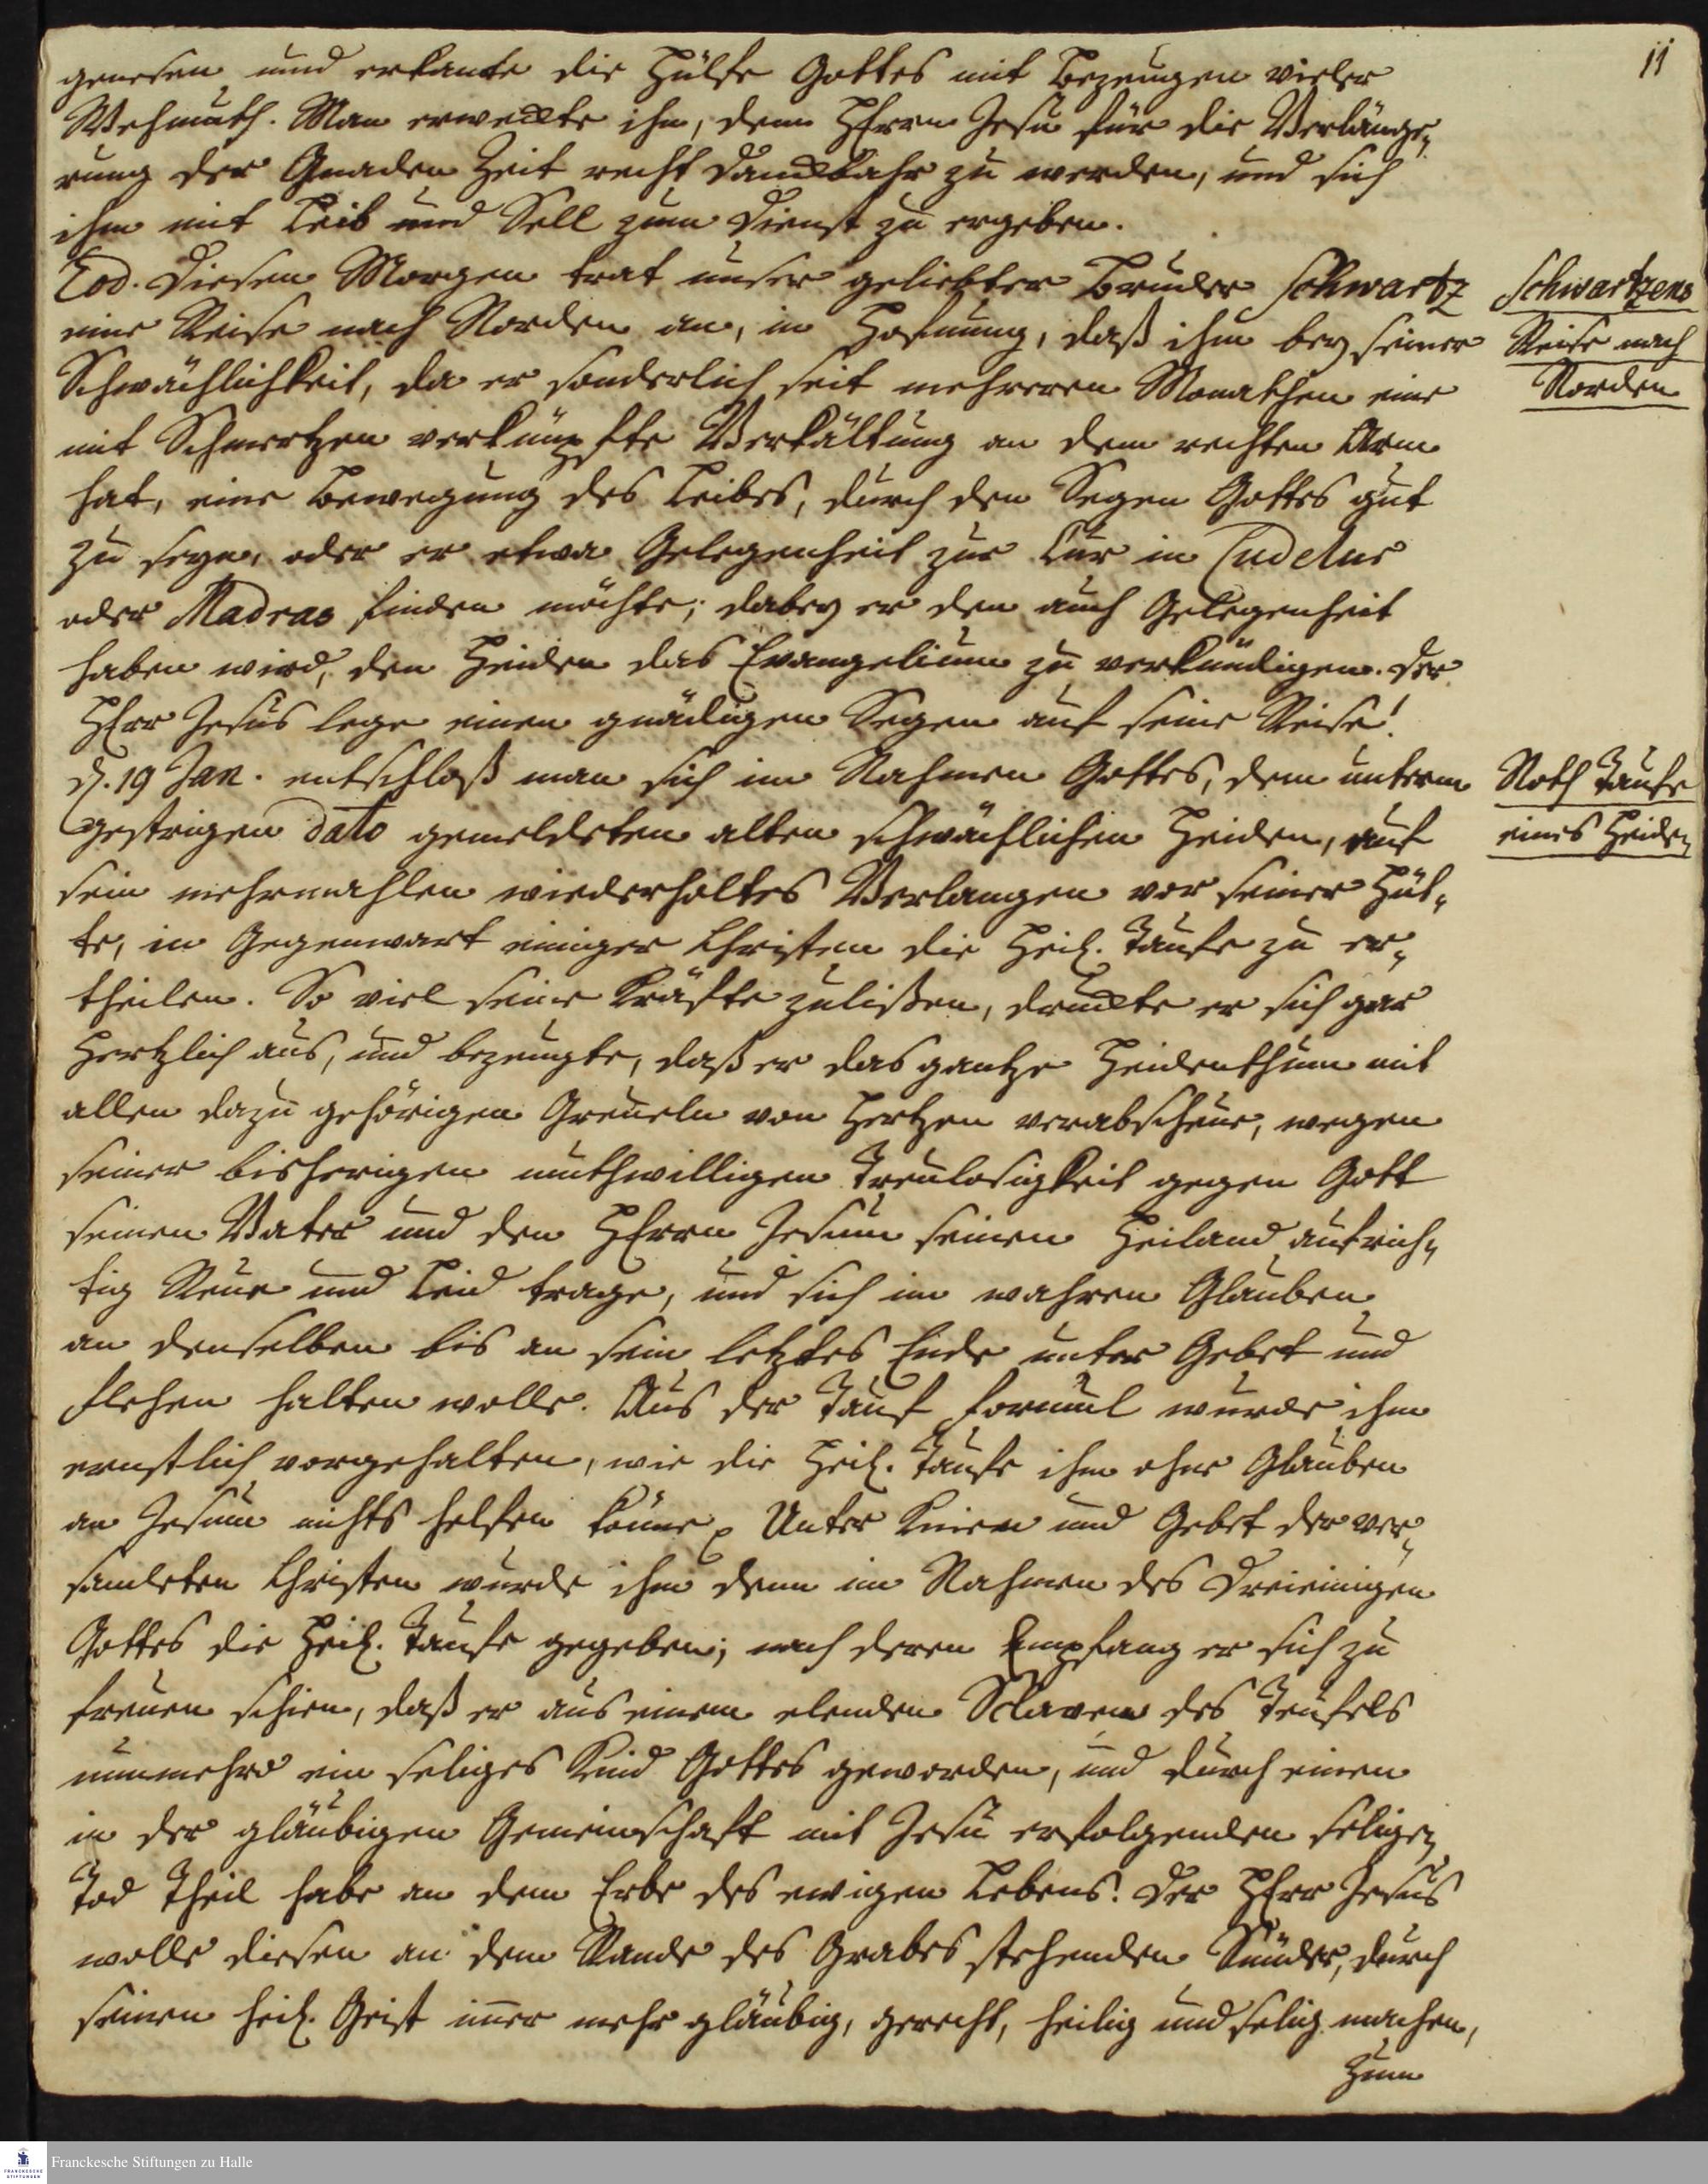 11
genesen und erkante die Hülfe Gottes mit Bezeugen vieler
Wehmuth. Man erweckte ihn, dem HErrn Jesu für die Verlänge-
rung der Gnaden Zeit recht danckbahr zu werden, und sich
ihm mit Leib und Sell zum Dienst zu ergeben.
Eod. Diesen Morgen trat unser geliebter Bruder Schwartz
eine Reise nach Norden an, in Hofnung, daß ihm bey seiner
Schwächlichkeit, da er sonderlich seit mehreren Monathen eine
mit Schmertzen verknüpfte Verkältung an dem rechten Arm
hat, eine Bewegung des Leibes, durch den Segen Gottes gut
zu seyn, oder er etwa Gelegenheit zur Cur in Cudelur
oder Madras finden möchte; dabey er den auch Gelegenheit
haben wird, den Heiden das Evangelium zu verkündigen. Der
HErr Jesus lege einen gnädigen Segen auf seine Reise!
Schwartzens
Reise nach
Norden
d. 19 Jan. entschloß man sich im Nahmen Gottes, dem unterm
gestrigen dato gemeldeten alten schwächlichen Heiden, auf
sein mehrmahlen wiederholtes Verlangen vor seiner Hüt-
te, in Gegenwart einiger Christen die Heil. Taufe zu er-
theilen. So viel seine Kräfte zulißen, druckte er sich gar
hertzlich aus, und bezeugte, daß er das gantze Heidenthum mit
allen dazu gehörigen Greueln von Hertzen verabscheue, wegen
seiner bisherigen muthwilligen Treulosigkeit gegen Gott
seinen Vater und den HErrn Jesum seinen Heiland aufrich-
tig Reue und Leid trage, und sich im wahren Glauben
an denselben bis an sein letztes Ende unter Gebet und
Flehen halten wolle. Aus der Tauf Formul wurde ihm
ernstlich vorgehalten, wie die Heil. Taufe ihm ohne Glauben
an Jesum nichts helfen könne. Unter Knien und Gebet der ver-
samleten Christen wurde ihm denn im Nahmen des Dreieinigen
Gottes die Heil. Taufe gegeben; nach deren Empfang er sich zu
freuen schien, daß er aus einem elenden Sclaven des Teufels
nunmehro ein seliges Kind Gottes geworden, und durch einen
in der gläubigen Gemeinschaft mit Jesu erfolgenden seligen
Tod Theil habe an dem Erbe des ewigen Lebens. Der HErr Jesus
wolle diesen an dem Rande des Grabes stehenden Sünder, durch
seinen heil. Geist imer mehr gläubig, gerecht, heilig und selig machen,
zum
Noth Taufe
eines Heiden
FRANCKESCHE
STIFTUNGEN
Franckesche Stiftungen zu Halle